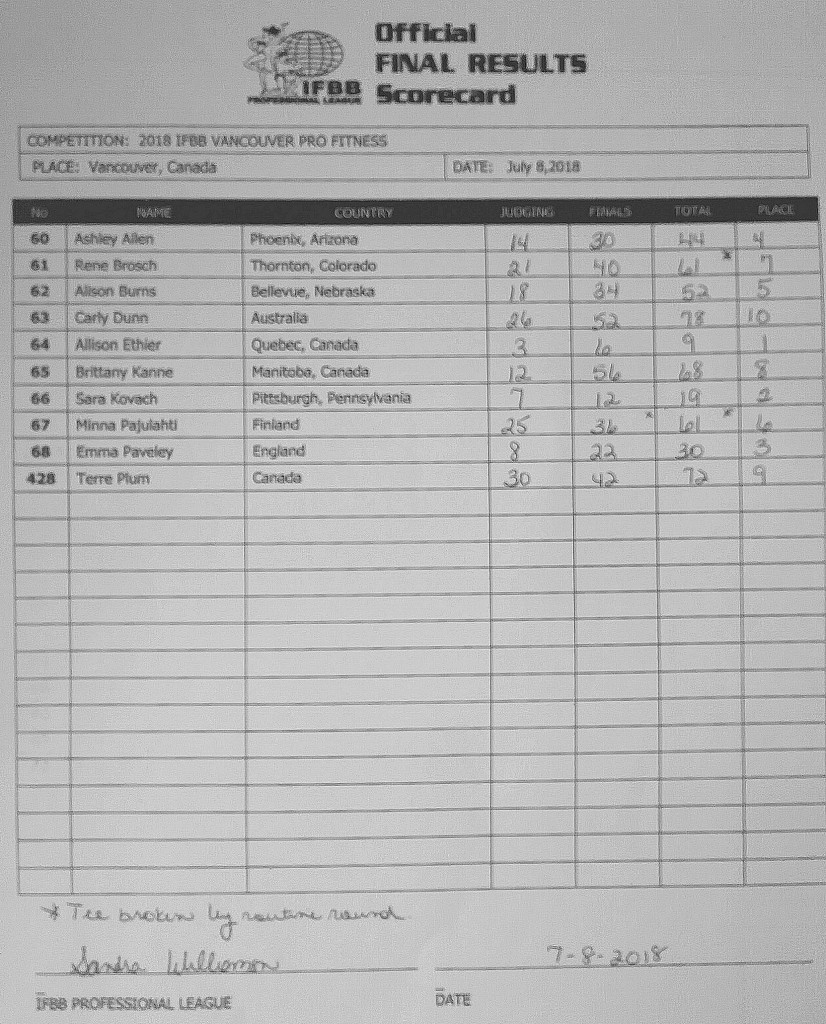 Official
FINAL RESULTS
Scorecard
IFBB
PROFESSIONAL LEAGUE
COMPETITION: 2018 IFBB VANCOUVER PRO FITNESS
PLACE: Vancouver, Canada DATE: July 8,2018
No NAME COUNTRY JUDGING FINALS TOTAL PLACE
60 Ashley Allen Phoenix, Arizona 14 30 44 4
61 Rene Brosch Thornton, Colorado 21 40 61* 7
62 Alison Burns Bellevue, Nebraska 18 34 52 5
63 Carly Dunn Australia 26 52 78 10
64 Allison Ethier Quebec, Canada 3 6 9 1
65 Brittany Kanne Manitoba, Canada 12 56 68 8
66 Sara Kovach Pittsburgh, Pennsylvania 7 12 19 2
67 Minna Pajulahti Finland 25 36* 61* 6
68 Emma Paveley England 8 22 30 3
428 Terre Plum Canada 30 42 72 9
* Tee broken by routine round.
Sandra Williamson 7-8-2018
IFBB PROFESSIONAL LEAGUE DATE